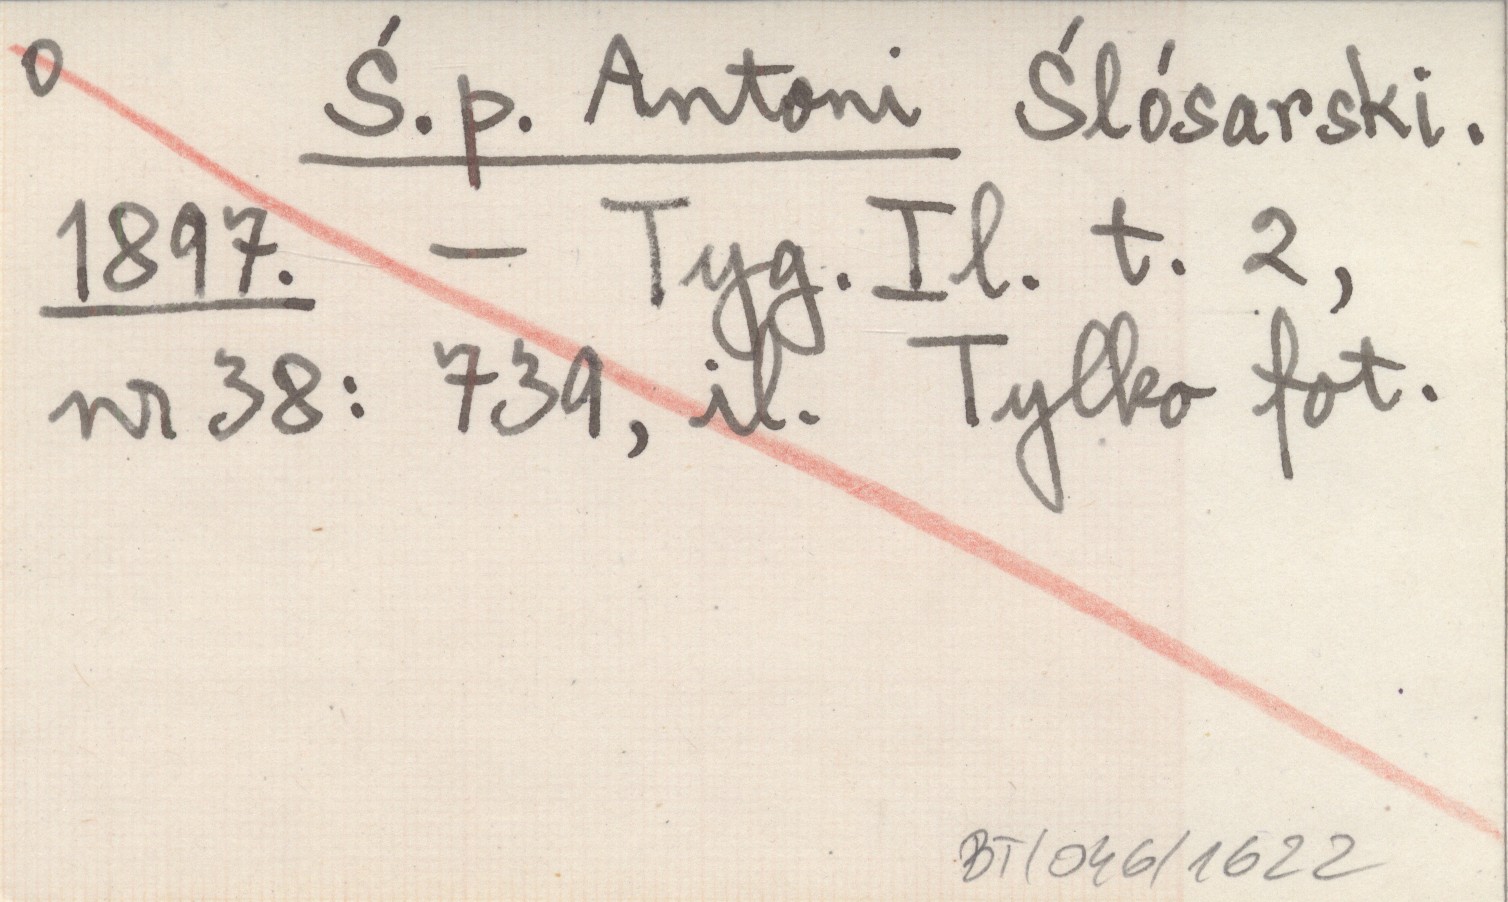 0 Ś.p. Antoni Ślósarski.
1897. — Tyg. Il. t. 2,
nr 38: 739, il. Tylko fot.
BT/046/1622